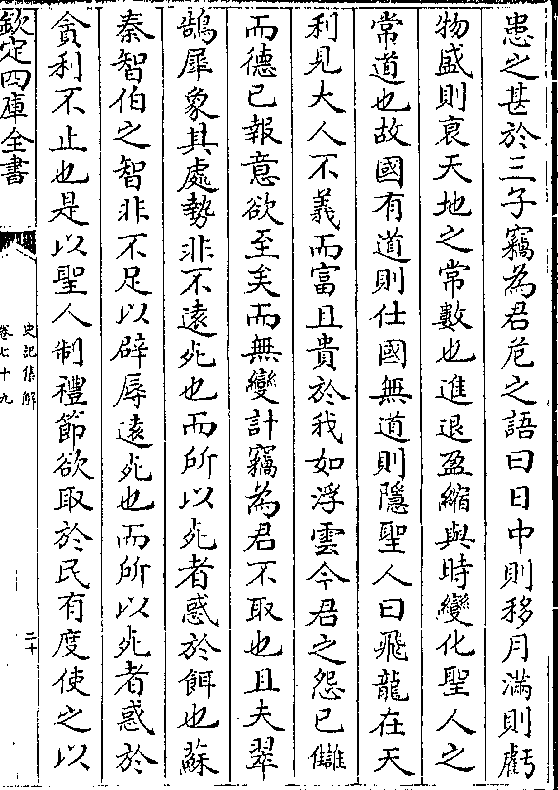 患之甚於三子竊為君危之語曰日中則移月滿則虧
物盛則衰天地之常數也進退盈縮與時變化聖人之
常道也故國有道則仕國無道則隱聖人曰飛龍在天
利見大人不義而富且貴於我如浮雲今君之怨已讎
而德已報意欲至矣而無變計竊為君不取也且夫翠
鵠犀象其處勢非不遠死也而所以死者惑於餌也蘇
秦智伯之智非不足以辟辱遠死也而所以死者惑於
貪利不止也是以聖人制禮節欲取於民有度使之以
欽定四庫全書
史記集解
卷七十九
二十